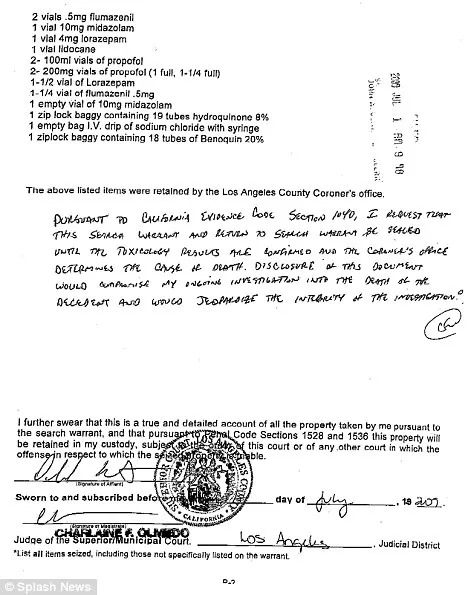 2 vials .5mg flumazenil
1 vial 10mg midazolam
1 vial 4mg lorazepam
1 vial lidocane
2- 100ml vials of propofol
2- 200mg vials of propofol (1 full, 1-1/4 full)
1-1/2 vial of Lorazepam
1-1/4 vial of flumazenil .5mg
1 empty vial of 10mg midazolam
1 zip lock baggy containing 19 tubes hydroquinone 8%
1 empty bag I.V. drip of sodium chloride with syringe
1 ziplock baggy containing 18 tubes of Benoquin 20%
2009 JUL 1
The above listed items were retained by the Los Angeles County Coroner's office.
PURSUANT TO CALIFORNIA EVIDENCE CODE SECTION 1040, I REQUEST THAT
THIS SEARCH WARRANT AND RETURN TO SEARCH WARRANT BE SEALED
UNTIL THE TOXICOLOGY RESULTS ARE CONFIRMED AND THE CORONER'S OFFICE
DETERMINES THE CAUSE OF DEATH. DISCLOSURE OF THIS DOCUMENT
WOULD COMPROMISE MY ONGOING INVESTIGATION INTO THE DEATH OF THE
DECEDENT AND WOULD JEOPARDIZE THE INTEGRITY OF THE INVESTIGATION.
I further swear that this is a true and detailed account of all the property taken by me pursuant to
the search warrant, and that pursuant to Penal Code Sections 1528 and 1536 this property will
be retained in my custody, subject to the order of this court or of any other court in which the
offense in respect to which the seized property is triable.
(Signature of Affiant)
SUPERIOR COURT LOS ANGELES COUNTY
CALIFORNIA
Sworn to and subscribed before day of July,
(Signature of Magistrate)
CHARLAINE F. OLMEDO
Judge of the Superior/Municipal Court. Los Angeles, Judicial District
*List all items seized, including those not specifically listed on the warrant.
© Splash News